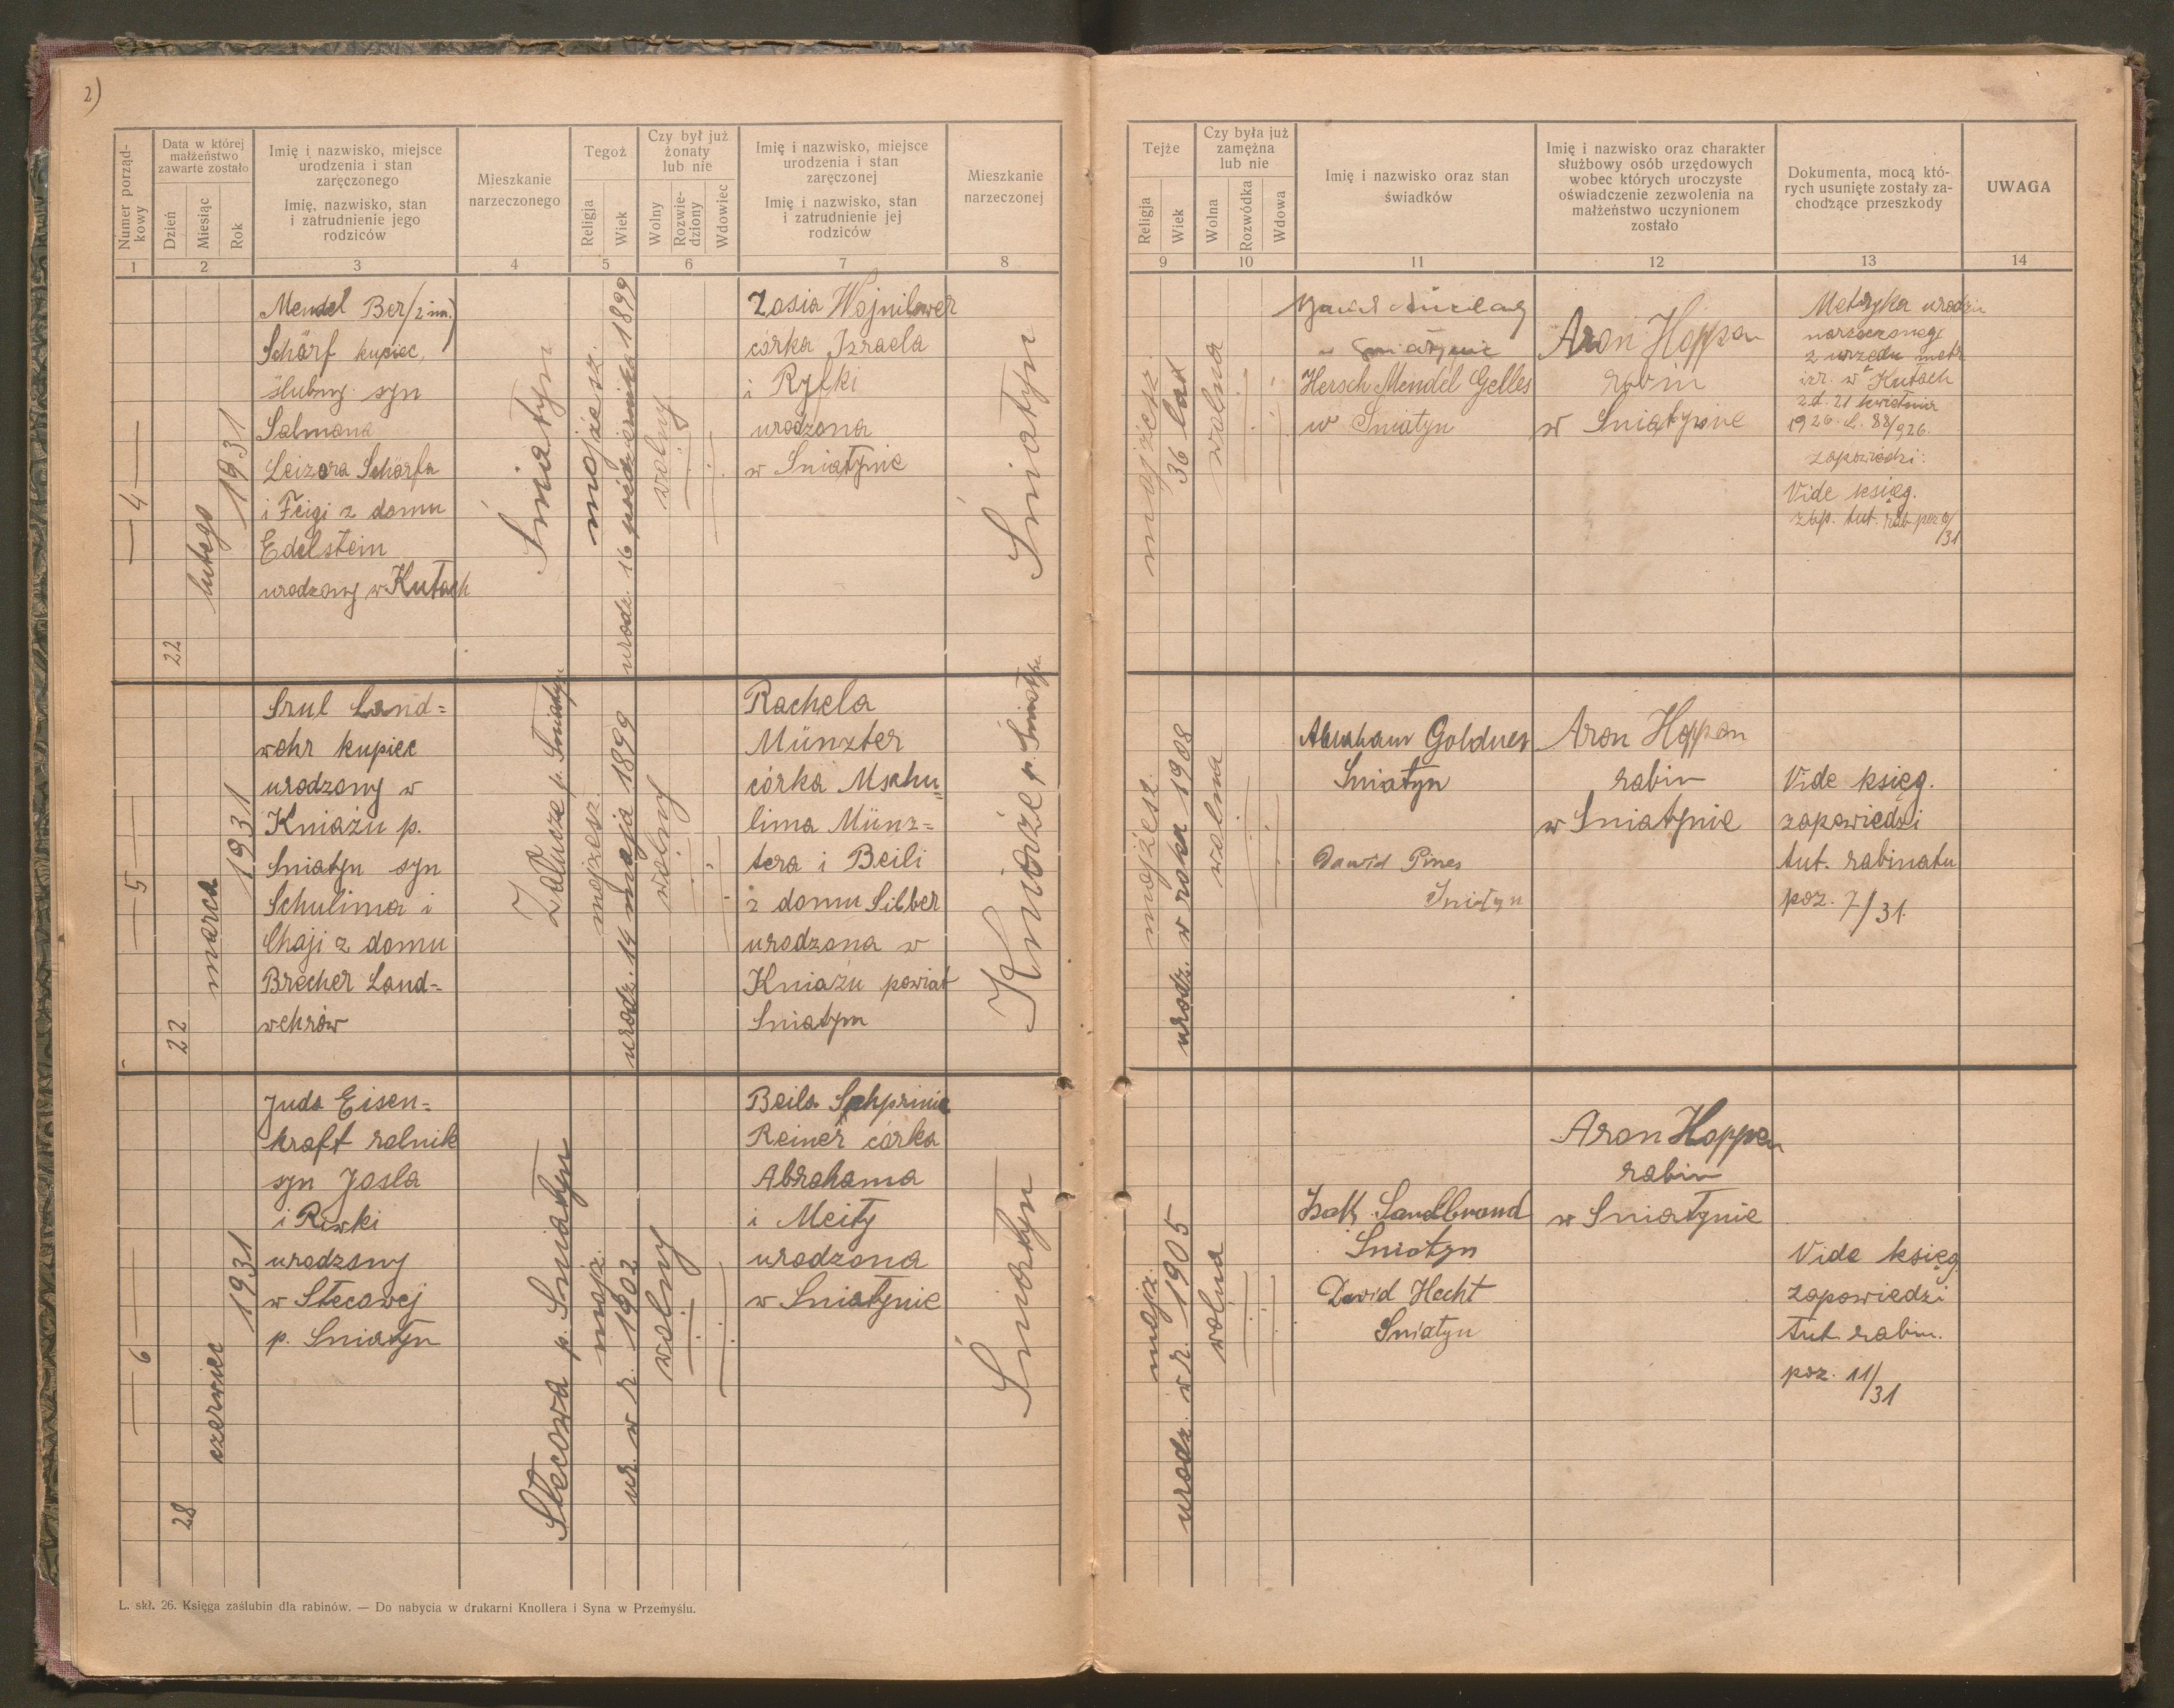 2)
Numer porząd-
kowy
Data w której
małżeństwo
zawarte zostało
Dzień
Miesiąc
Rok
Imię i nazwisko, miejsce
urodzenia i stan
zaręczonego
Imię, nazwisko, stan
i zatrudnienie jego
rodziców
Mieszkanie
narzeczonego
Tegoż
Religja
Wiek
Czy był już
żonaty
lub nie
Wolny
Rozwie-
dziony
Wdowiec
Imię i nazwisko, miejsce
urodzenia i stan
zaręczonej
Imię i nazwisko, stan
i zatrudnienie jej
rodziców
Mieszkanie
narzeczonej
Tejże
Religja
Wiek
Czy była już
zamężna
lub nie
Wolna
Rozwódka
Wdowa
Imię i nazwisko oraz stan
świadków
Imię i nazwisko oraz charakter
służbowy osób urzędowych
wobec których uroczyste
oświadczenie zezwolenia na
małżeństwo uczynionem
zostało
Dokumenta, mocą któ-
rych usunięte zostały za-
chodzące przeszkody
UWAGA
1 2 3 4 5 6 7 8 9 10 11 12 13 14
4
22
lutego
1931
Mendel Ber /2 im.)
Schärf kupiec,
ślubny syn
Salmona
Leizora Schärfa
i Feigi z domu
Edelstein
urodzony w Kutach
Śniatyn
mojżesz.
urodz. 16 października 1899
wolny
Zosia Wojnilower
córka Izraela
i Ryfki
urodzona
w Śniatynie
Śniatyn
mojżesz.
36 lat
wolna
w Śniatynie
Hersch Mendel Gelles
w Śniatyn
Aron Hoppen
rabin
w Śniatynie
Metryka urodzin
narzeczonego
z urzędu metr
izr. w Kutach
z d. 21 kwietnia
1926. L. 88/926.
zapowiedzi:
Vide księg.
zap. tut. rab. poz
/31
5
22
marca
1931
Srul Land=
wehr kupiec
urodzony w
Kniażu p.
Sniatyn syn
Schulima i
Chaji z domu
Brecher Land=
wehrów
Załucze p. Śniatyn
mojżesz.
urodz. 14 maja 1899
wolny
Rachela
Münzter
córka Mschu=
lima Münz=
tera i Beili
z domu Silber
urodzona w
Kniażu powiat
Sniatyn
Kniaże p. Śniatyn
mojżesz.
urodz. w roku 1908
wolna
Abraham Goldner
Sniatyn
Dawid Pines
Sniatyn
Aron Hoppen
rabin
w Sniatynie
Vide księg.
zapowiedzi
tut. rabinatu
poz. 7/31.
6
28
czerwiec
1931
Juda Eisen=
kraft rolnik
syn Josla
i Riwki
urodzony
w Stecowej
p. Sniatyn
Stecowa p. Sniatyn
mojż.
ur. w r. 1902
wolny
Beila Schprinie
Reiner córka
Abrahama
i Meity
urodzona
w Sniatynie
Śniatyn
mojż.
urodz. w r. 1905
wolna
Isak Sandbrand
Sniatyn
David Hecht
Sniatyn
Aron Hoppen
rabin
w Sniatynie
Vide księg
zapowiedzi
tut. rabin.
poz. 11/31
L. skł. 26. Księga zaślubin dla rabinów. — Do nabycia w drukarni Knollera i Syna w Przemyślu.